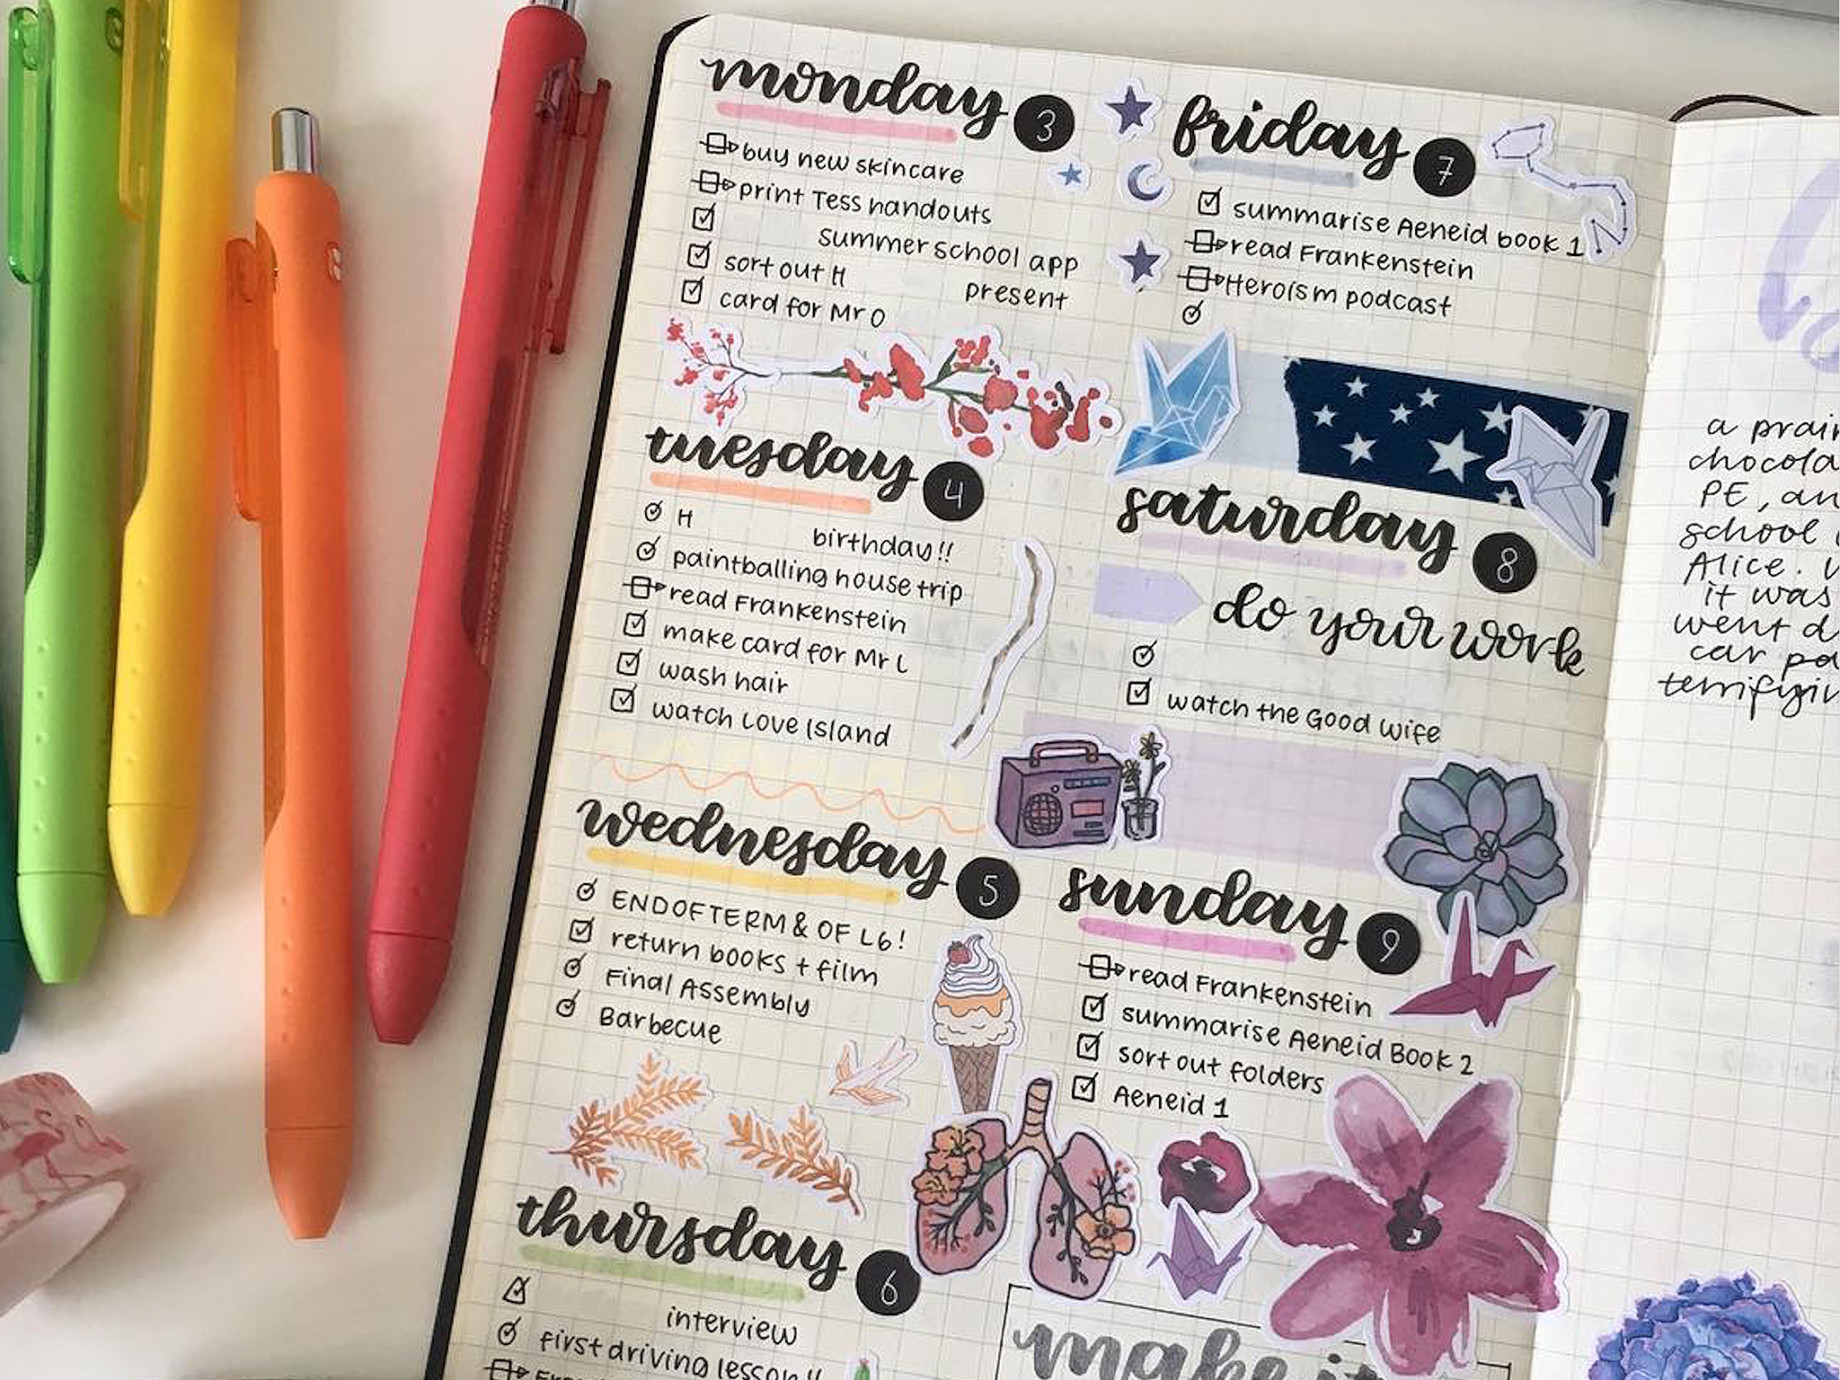 monday 3
buy new skincare
print Tess handouts
summer school app
sort out H present
card for Mr O
tuesday 4
H birthday!!
paintballing house trip
read Frankenstein
make card for Mr L
wash hair
watch Love Island
wednesday 5
END OF TERM & OF L6!
return books + film
Final Assembly
Barbecue
thursday 6
interview
first driving lesson!!
friday 7
summarise Aeneid book 1
read Frankenstein
Heroism podcast
saturday 8
do your work
watch the Good Wife
sunday 9
read Frankenstein
summarise Aeneid Book 2
sort out folders
Aeneid 1
make it
a
PE,
school
Alice.
it was
went
car